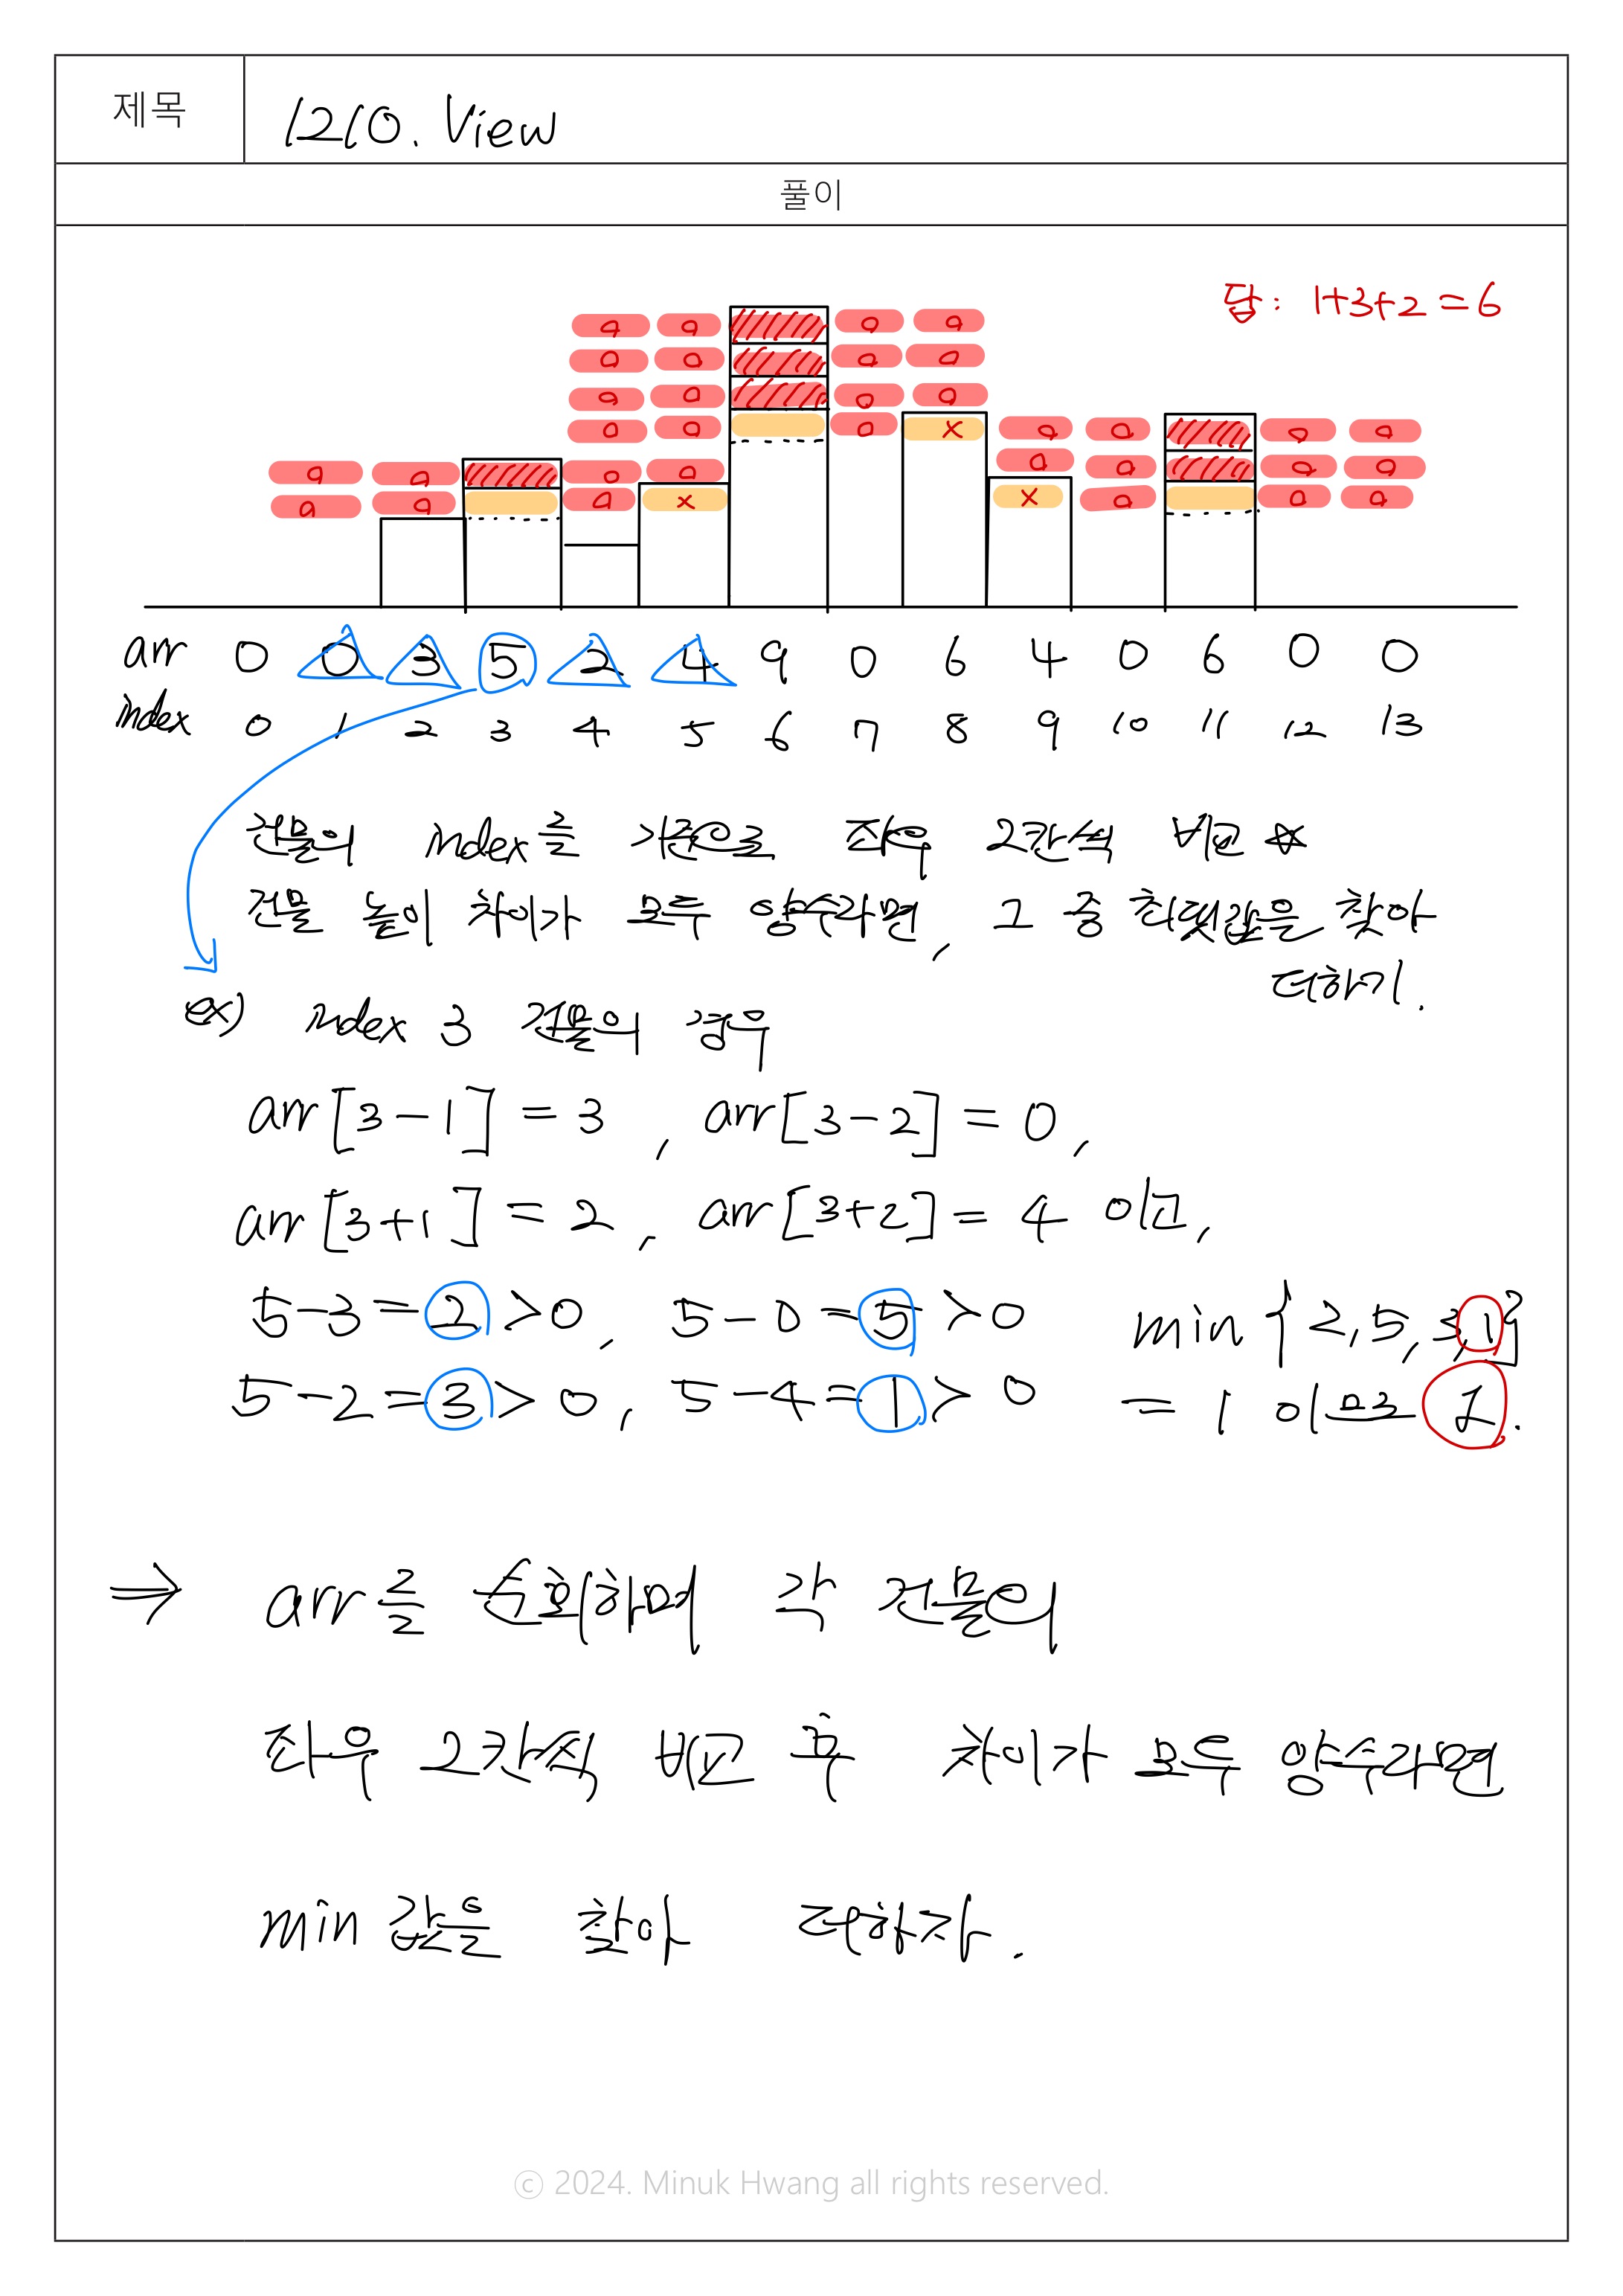 제목 1210. View
풀이
답: 1+3+2 = 6
a a a a
a a a a
a a a a
a a a x a a a a
a a a a a a a a a
a a a x x a a a
arr 0 0 3 5 2 4 9 0 6 4 0 6 0 0
index 0 1 2 3 4 5 6 7 8 9 10 11 12 13
건물의 index를 기준으로 좌우 2칸씩 비교 ☆
건물 높이 차이가 모두 양수라면, 그 중 최솟값을 찾아
더하기.
ex) index 3 건물의 경우
arr[3-1] = 3, arr[3-2] = 0,
arr[3+1] = 2, arr[3+2] = 4 이고,
5-3=2>0, 5-0=5>0 min{2,5,3,1}
5-2=3>0, 5-4=1>0 = 1 이므로 1.
⇒ arr을 순회하며 각 건물의
좌우 2칸씩 비교 후 차이가 모두 양수라면
min 값을 찾아 더하자.
© 2024. Minuk Hwang all rights reserved.